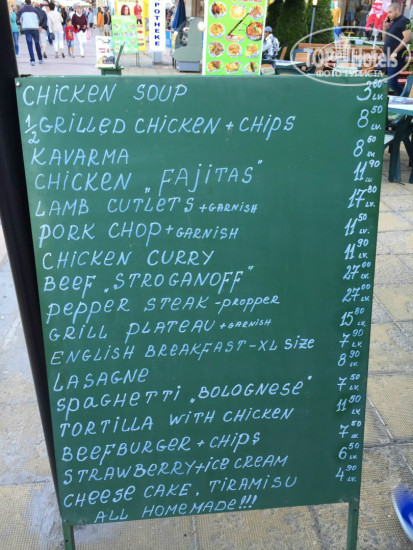 CHICKEN SOUP 3 60 LV.
1/2 GRILLED CHICKEN + CHIPS 8 50 LV.
KAVARMA 8 60 LV.
CHICKEN „FAJITAS" 11 90 LV.
LAMB CUTLETS + GARNISH 17 80 LV.
PORK CHOP + GARNISH 11 50 LV.
CHICKEN CURRY 11 90 LV.
BEEF „STROGANOFF" 27 00 LV.
PEPPER STEAK - PROPPER 27 00 LV.
GRILL PLATEAU + GARNISH 15 80 LV.
ENGLISH BREAKFAST - XL SIZE 7 90 LV.
LASAGNE 8 90 LV.
SPAGHETTI „BOLOGNESE" 7 50 LV.
TORTILLA WITH CHICKEN 11 50 LV.
BEEFBURGER + CHIPS 7 50 LV.
STRAWBERRY + ICE CREAM 6 50 LV.
CHEESE CAKE, TIRAMISU 4 90 LV.
ALL HOMEMADE!!!